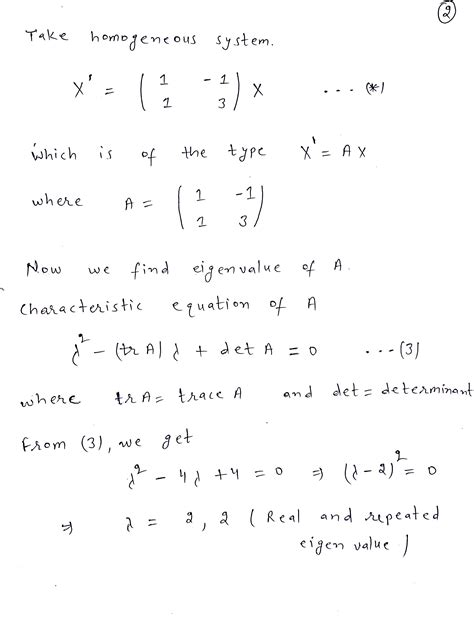 ②
Take homogeneous system.
X' = ( 1 -1 ; 1 3 ) X ... (*)
which is of the type X' = AX
where A = ( 1 -1 ; 1 3 )
Now we find eigenvalue of A.
Characteristic equation of A
λ² - (trA) λ + det A = 0 ... (3)
where trA = trace A and det = determinant
From (3), we get
λ² - 4λ + 4 = 0 ⇒ (λ - 2)² = 0
⇒ λ = 2, 2 ( Real and repeated
eigen value )